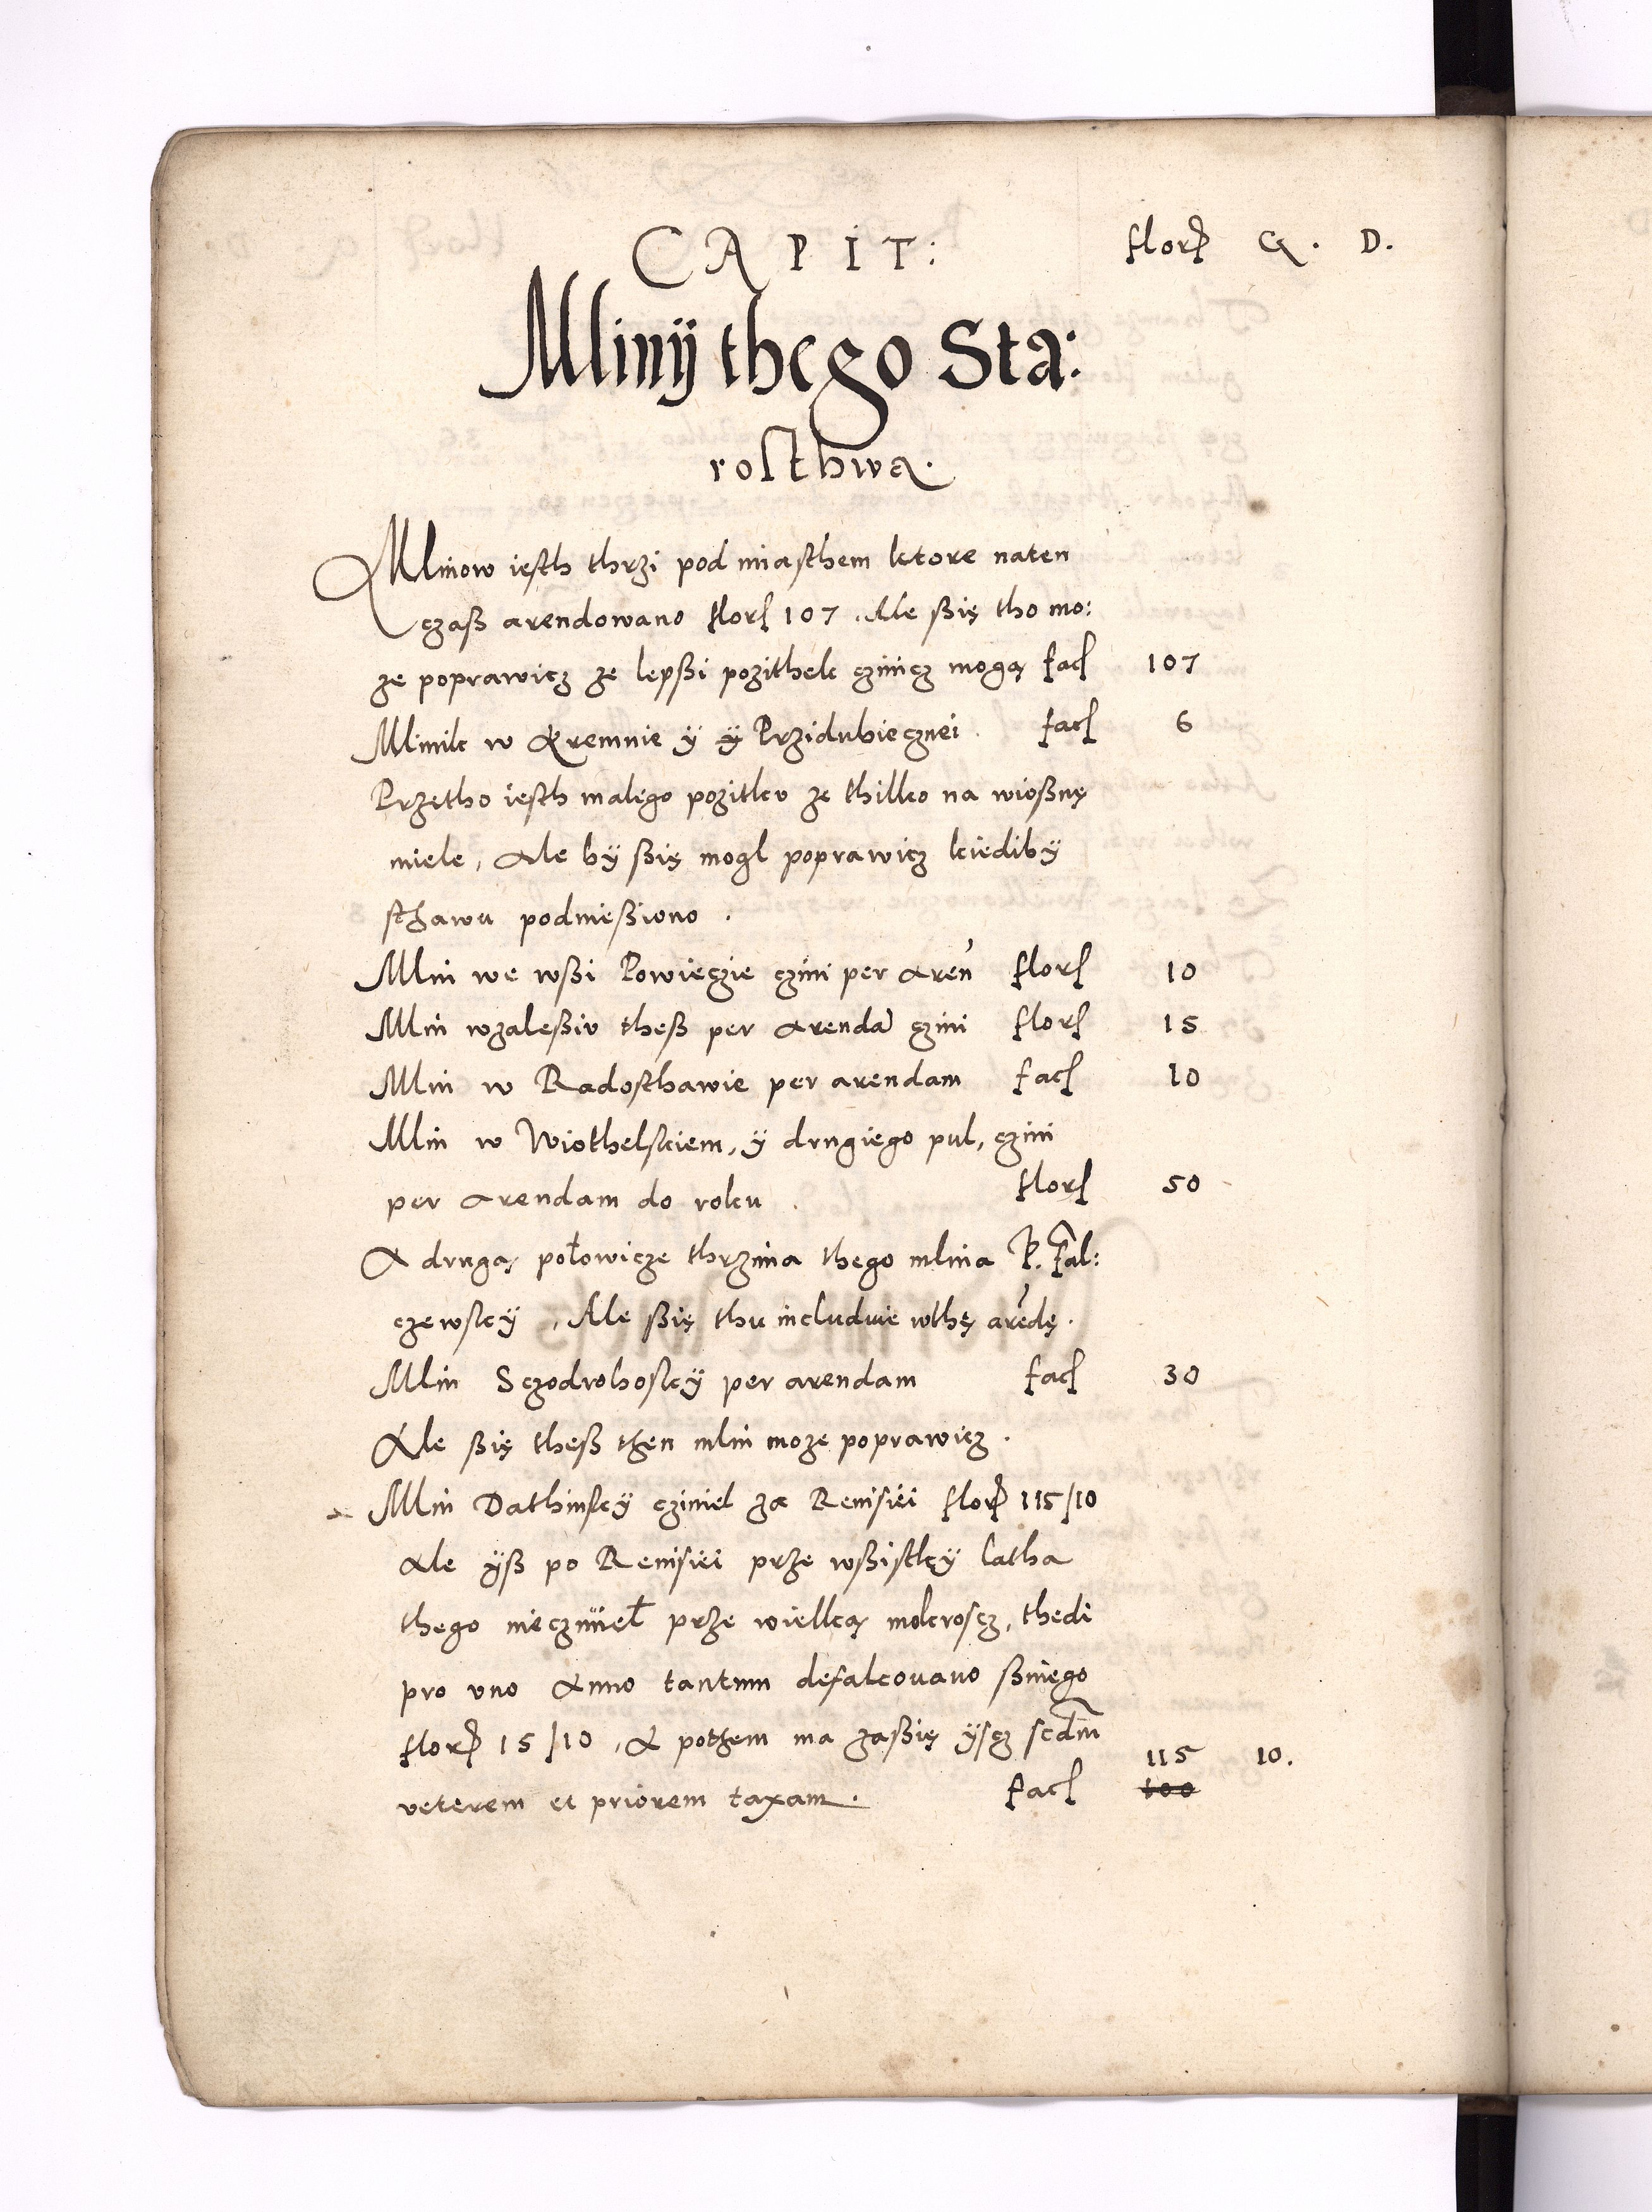 CAPIT: florꝭ G. D.
Mlinÿ thego Sta:
rosthwa.
Mlinow iesth thrzi pod miasthem ktore naten
czaß arendowano florꝭ 107. Ale ßię tho mo:
ze poprawicz ze lepßi pozithek czinicz mogą facꝭ 107
Mlinik w Kremnie ÿ ÿ Przidubiecznei. facꝭ 6
Przetho iesth malego pozitku ze thilko na wiosßnę
miele, Ale bÿ ßię mogl poprawicz kiedibÿ
sthawu podnießiono.
Mlin we wßi Powieczie czini per Aren florꝭ 10
Mlin wzaleßiu theß per Arenda czini florꝭ 15
Mlin w Radosthawie per arendam facꝭ 10
Mlin w Wiothelskiem, ÿ drugiego pul, czini
per Arendam do roku. florꝭ 50
A drugą połowicze thrzima thego mlina P. Fal:
czewskÿ, Ale ßię thu includuie wthę aredę.
Mlin Sczodrohoskÿ per arendam facꝭ 30
Ale ßię theß then mlin moze poprawicz.
Mlin Dathinskÿ cziniel za Reuisiei florꝭ 115/10
Ale ÿß po Reuisiei prze wßistkÿ latha
thego nieczÿnieł prze wielką mokroscz, thedi
pro uno Anno tantum defalcouano ßniego
florꝭ 15/10, A pothem ma zaßię ÿscz scdm
115 10.
veterem et priorem taxam. facꝭ 100